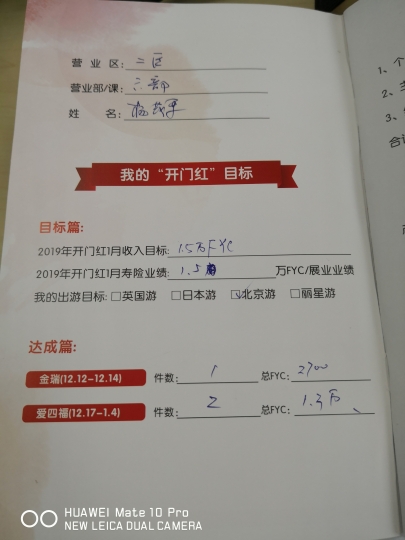 营 业 区: 二区
营业部/课: 六部
姓 名: 杨
我的“开门红”目标
目标篇:
2019年开门红1月收入目标: 1.5万FYC
2019年开门红1月寿险业绩: 1.5 万FYC/展业业绩
我的出游目标: □英国游 □日本游 ☑北京游 □丽星游
达成篇:
金瑞(12.12-12.14) 件数: 1 总FYC: 2700
爱四福(12.17-1.4) 件数: 2 总FYC: 1.3万
1、个
2、主
3、
合计
HUAWEI Mate 10 Pro
NEW LEICA DUAL CAMERA